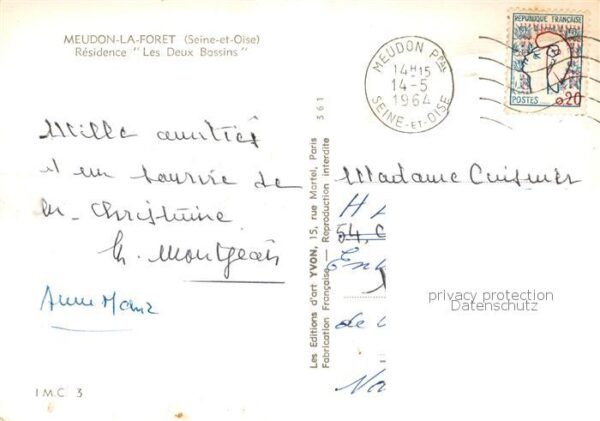 MEUDON-LA-FORET (Seine-et-Oise)
Résidence " Les Deux Bassins "
Mille amitiés
et un sourire de
Christine
M. Montjean
Anne Marie
I M.C. 3
361
Les Editions d'art YVON, 15, rue Martel, Paris
Fabrication Française — Reproduction interdite
MEUDON Ppal
14H15
14-5
1964
SEINE-ET-OISE
REPUBLIQUE FRANÇAISE
POSTES
0,20
Madame Cuisinier
54, C
de
privacy protection
Datenschutz